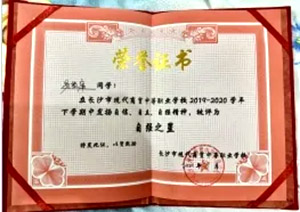 荣誉证书
同学：
在长沙市现代商贸中等职业学校2019-2020学年
下学期中发扬自信、自立、自强精神，被评为
自强之星
特发此证，以资鼓励
长沙市现代商贸中等职业学校